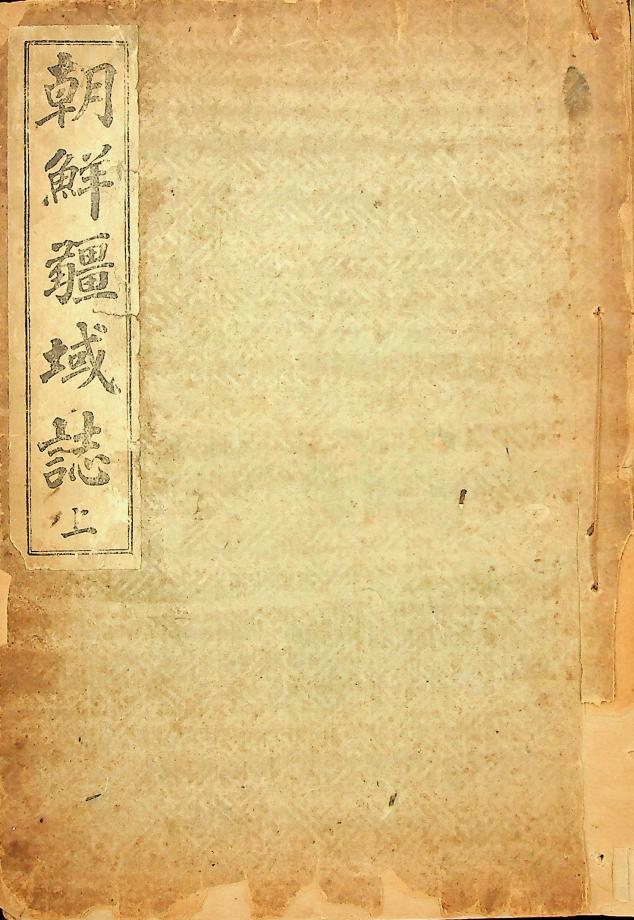 朝鮮疆域誌 上